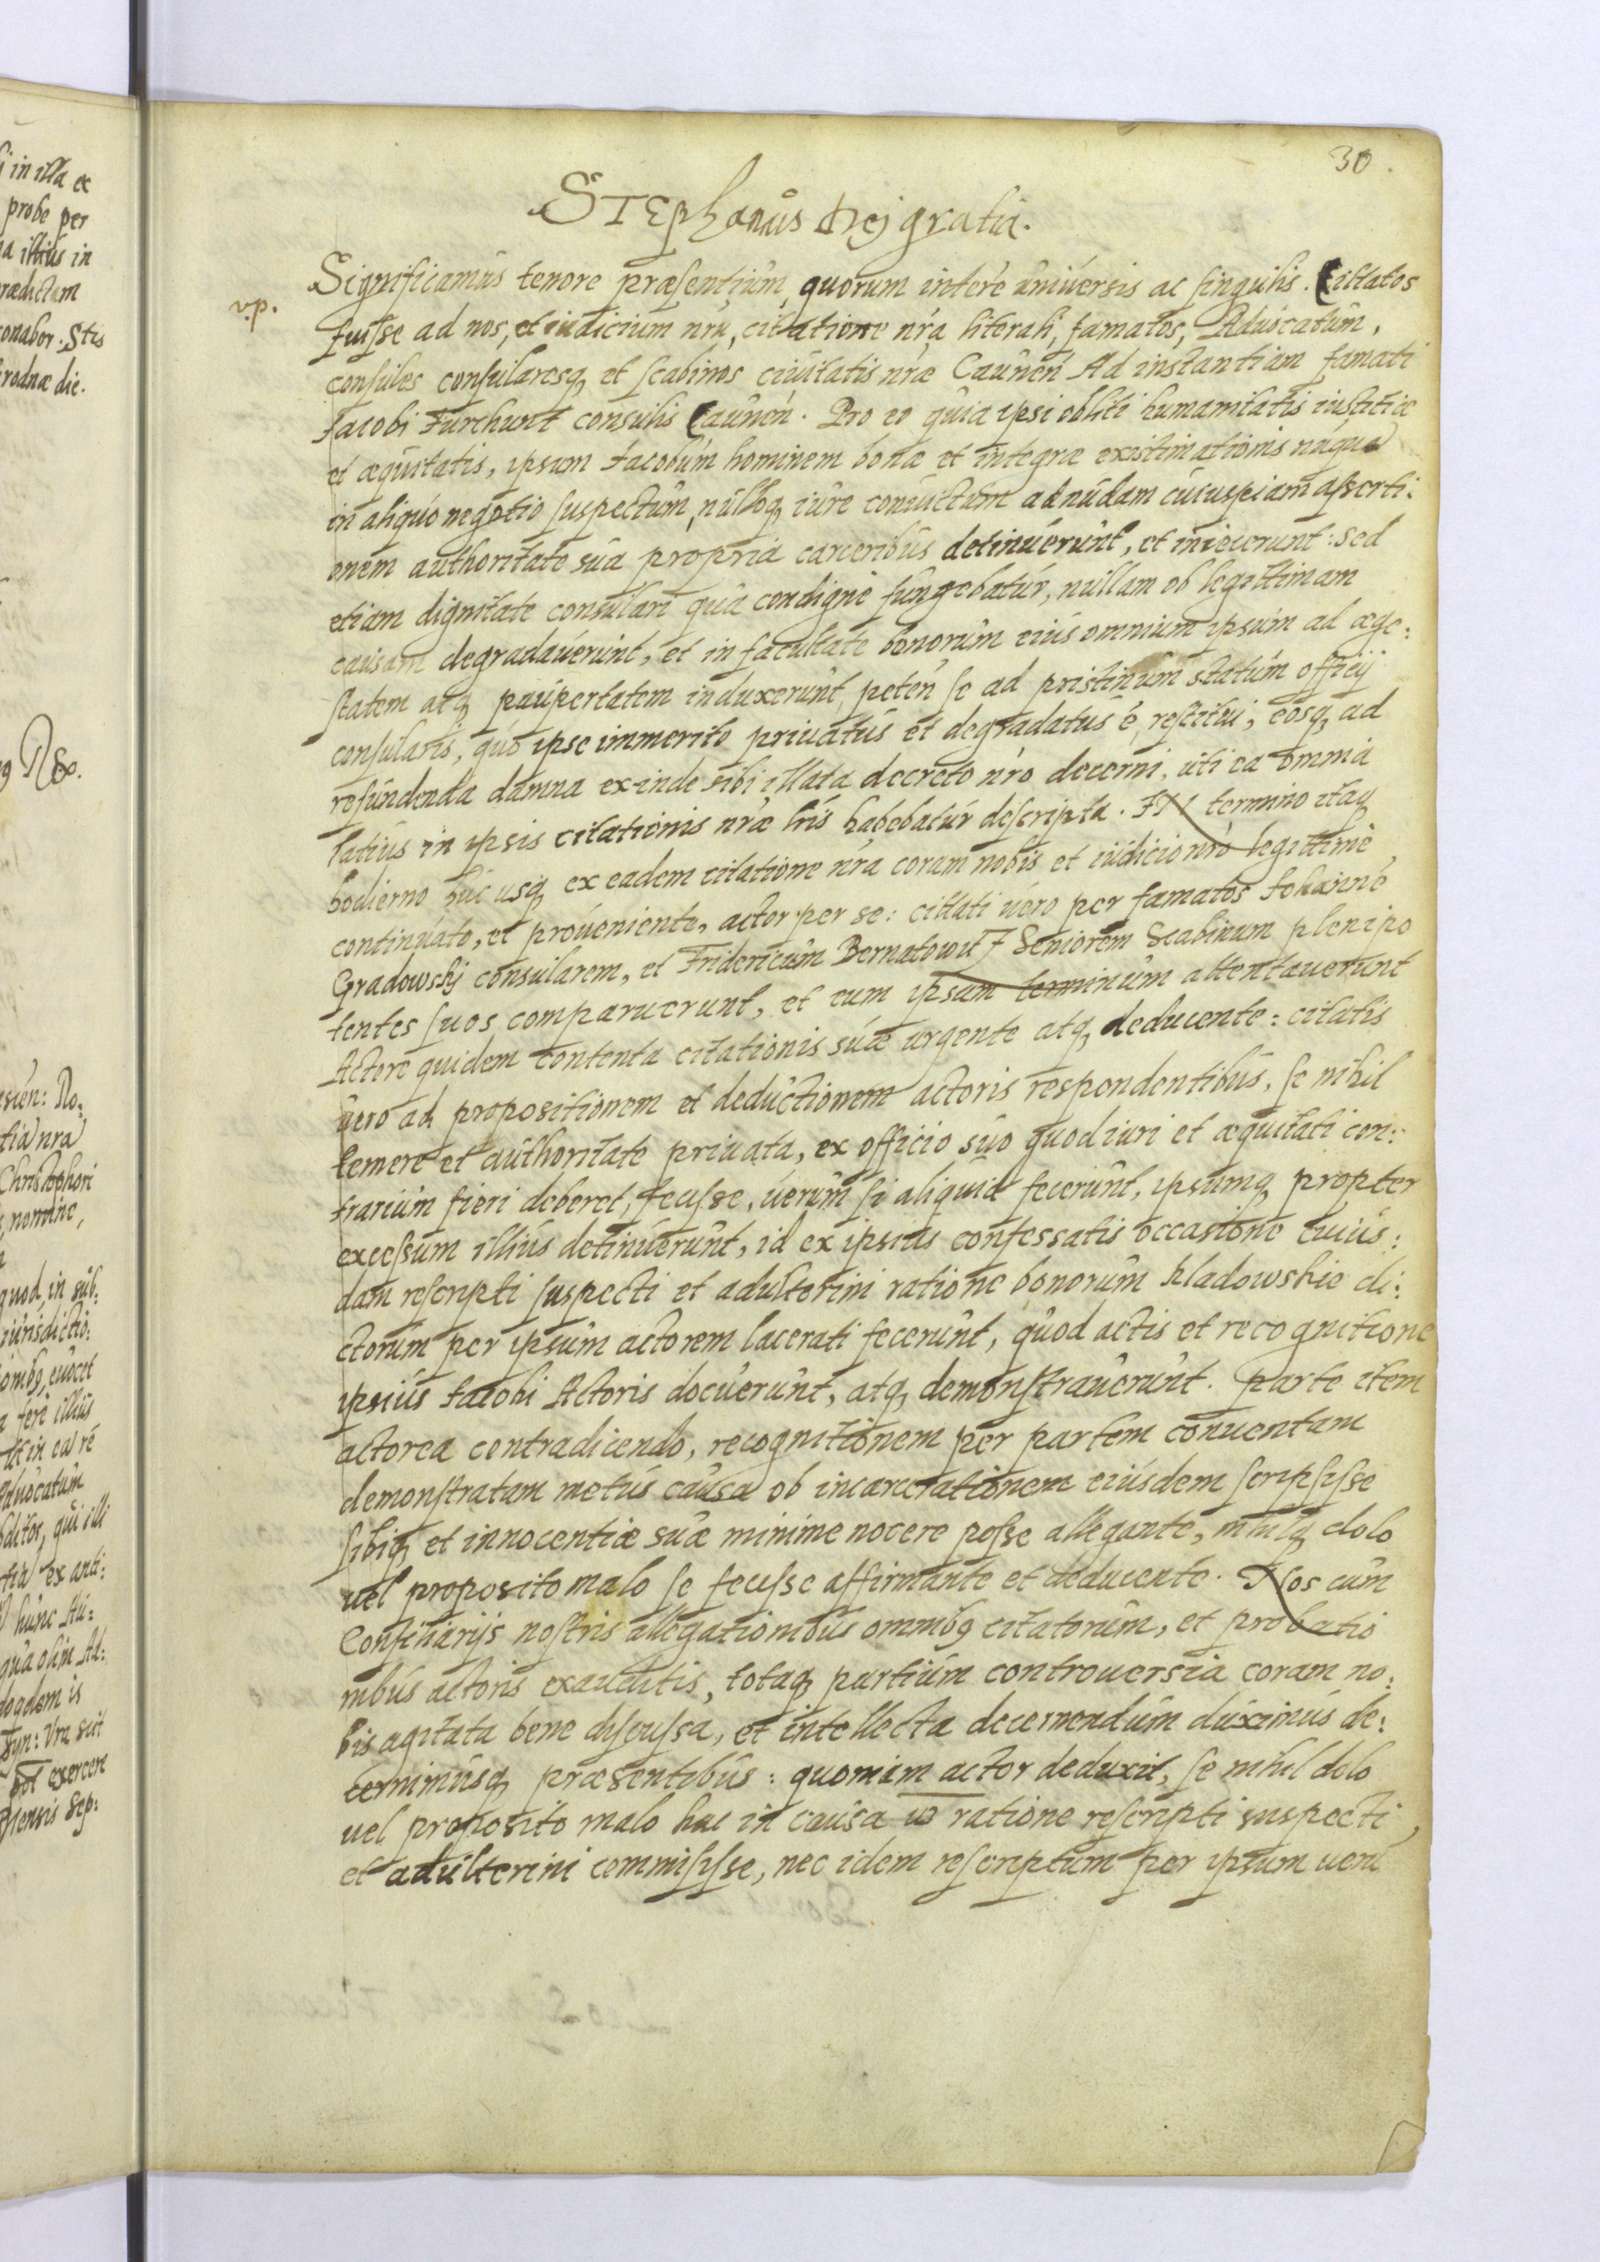 30.
STEphanus Dej gratia.
v.p.
Significamus tenore præsentium, quorum interē universis ac singulis. Cittatos
fuisse ad nos, et iudicium nr̄u, citatione nr̄a literali, famatos, Aduocatum,
consules consularesq₃ et scabinos ciuitatis nr̄æ Caunēn Ad instantiam famati
Jacobi Furchunt consulis Caunēn. Pro eo quia ipsi obliti humanitatis iustitiæ
et æquitatis, ipsum Jacobum hominem bonæ et integræ existimationis nūqua
in aliquo negotio suspectum, nulloq₃ iure conuictum ad nudam cuiuspiam asserti:
onem authoritate sua propria carceribus detinuerunt, et iniecerunt: sed
etiam dignitate consulari qua condignè fungebatur, nullam ob legittimam
causam degradauerunt, et in facultate bonorum eius omnium ipsum ad æge:
statem atq₃ paupertatem induxerunt, petēn se ad pristinum statum officij
consularis, quo ipse immerito priuatus et degradatus ē, restitui, eosq₃ ad
refundenda damna ex inde sibi illata decreto nr̄o decerni, uti ea omnia
latius in ipsis citationis nr̄æ lr̄is habebatur descripta. IN termino itaq₃
hodierno huc usq₃ ex eadem citatione nr̄a coram nobis et iudicio nr̄o legittimè
continuato, et proueniente, actor per se: cittati uero per famatos Johannē
Gradowskj consularem, et Fridericum Bernatowit J Seniorem Scabinum plenipo
tentes suos comparuerunt, et cum ipsum terminum attentauerunt
Actore quidem contenta citationis suæ urgente atq₃ deducente: citatis
uero ad propositionem et deductionem actoris respondentibus, se nihil
temere et authoritate priuata, ex officio suo quod iuri et æquitati con:
trarium fieri deberet, fecisse, uerum si aliquid fecerunt, ipsumq₃ propter
excessum illius detinuerunt, id ex ipsius confessatis occasione cuius:
dam rescripti suspecti et adulterini ratione bonorum Kladowskie di:
ctorum per ipsum actorem lacerati fecerunt, quod actis et recognitione
ipsius Jacobi Actoris docuerunt, atq₃ demonstrauerunt. Parte item
actorea contradicendo, recognitionem per partem conuentam
demonstratam metus causa ob incarcerationem eiusdem scripsisse
sibiq₃ et innocentiæ suæ minime nocere posse allegante, nihilq₃ dolo
uel proposito malo se fecisse affirmante et deducente. Nos cum
Consiliarijs nostris allegationibus omnibꝰ citatorum, et probatio
nibus actoris exauditis, totaq₃ partium controuersia coram no:
bis agitata bene discussa, et intellecta decernendum duximus de:
cernimusq₃ præsentibus: quoniam actor deduxit, se nihil dolo
uel proposito malo hac in causa ratione rescripti suspecti,
et adulterini commisisse, nec idem rescriptum per ipsum ueni